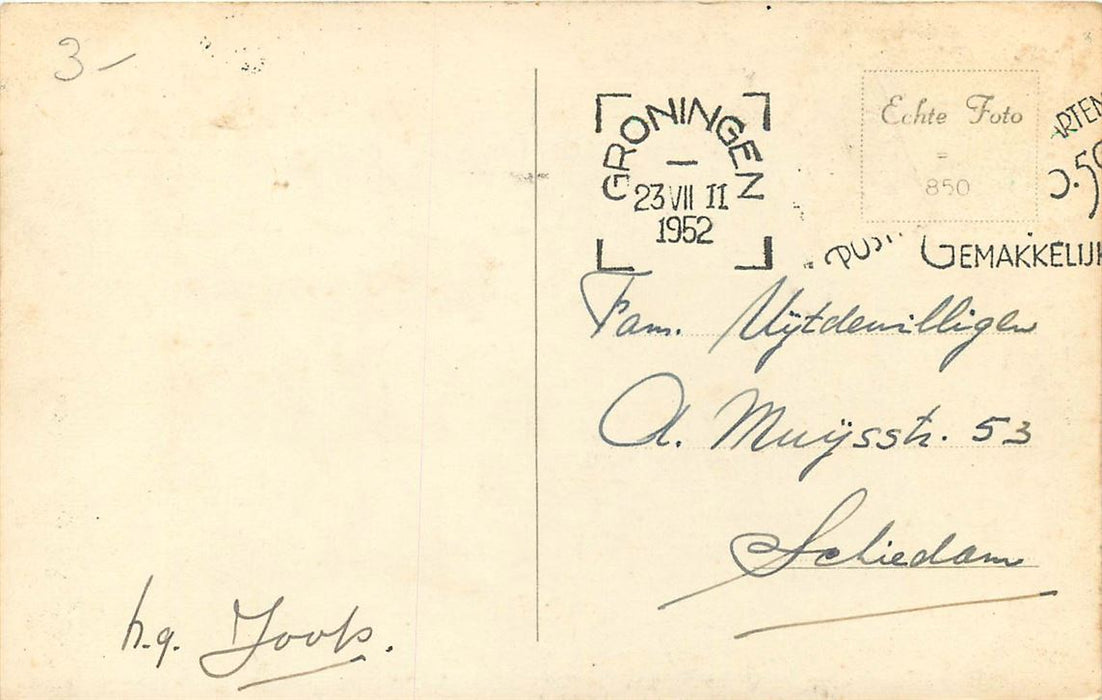 3-
GRONINGEN
23 VII 11
1952
Echte Foto
=
850
RTEN
0.50
POST
GEMAKKELIJK
Fam. Uijtdewilligen
A. Muijsstr. 53
Schiedam
h.g. Joop.